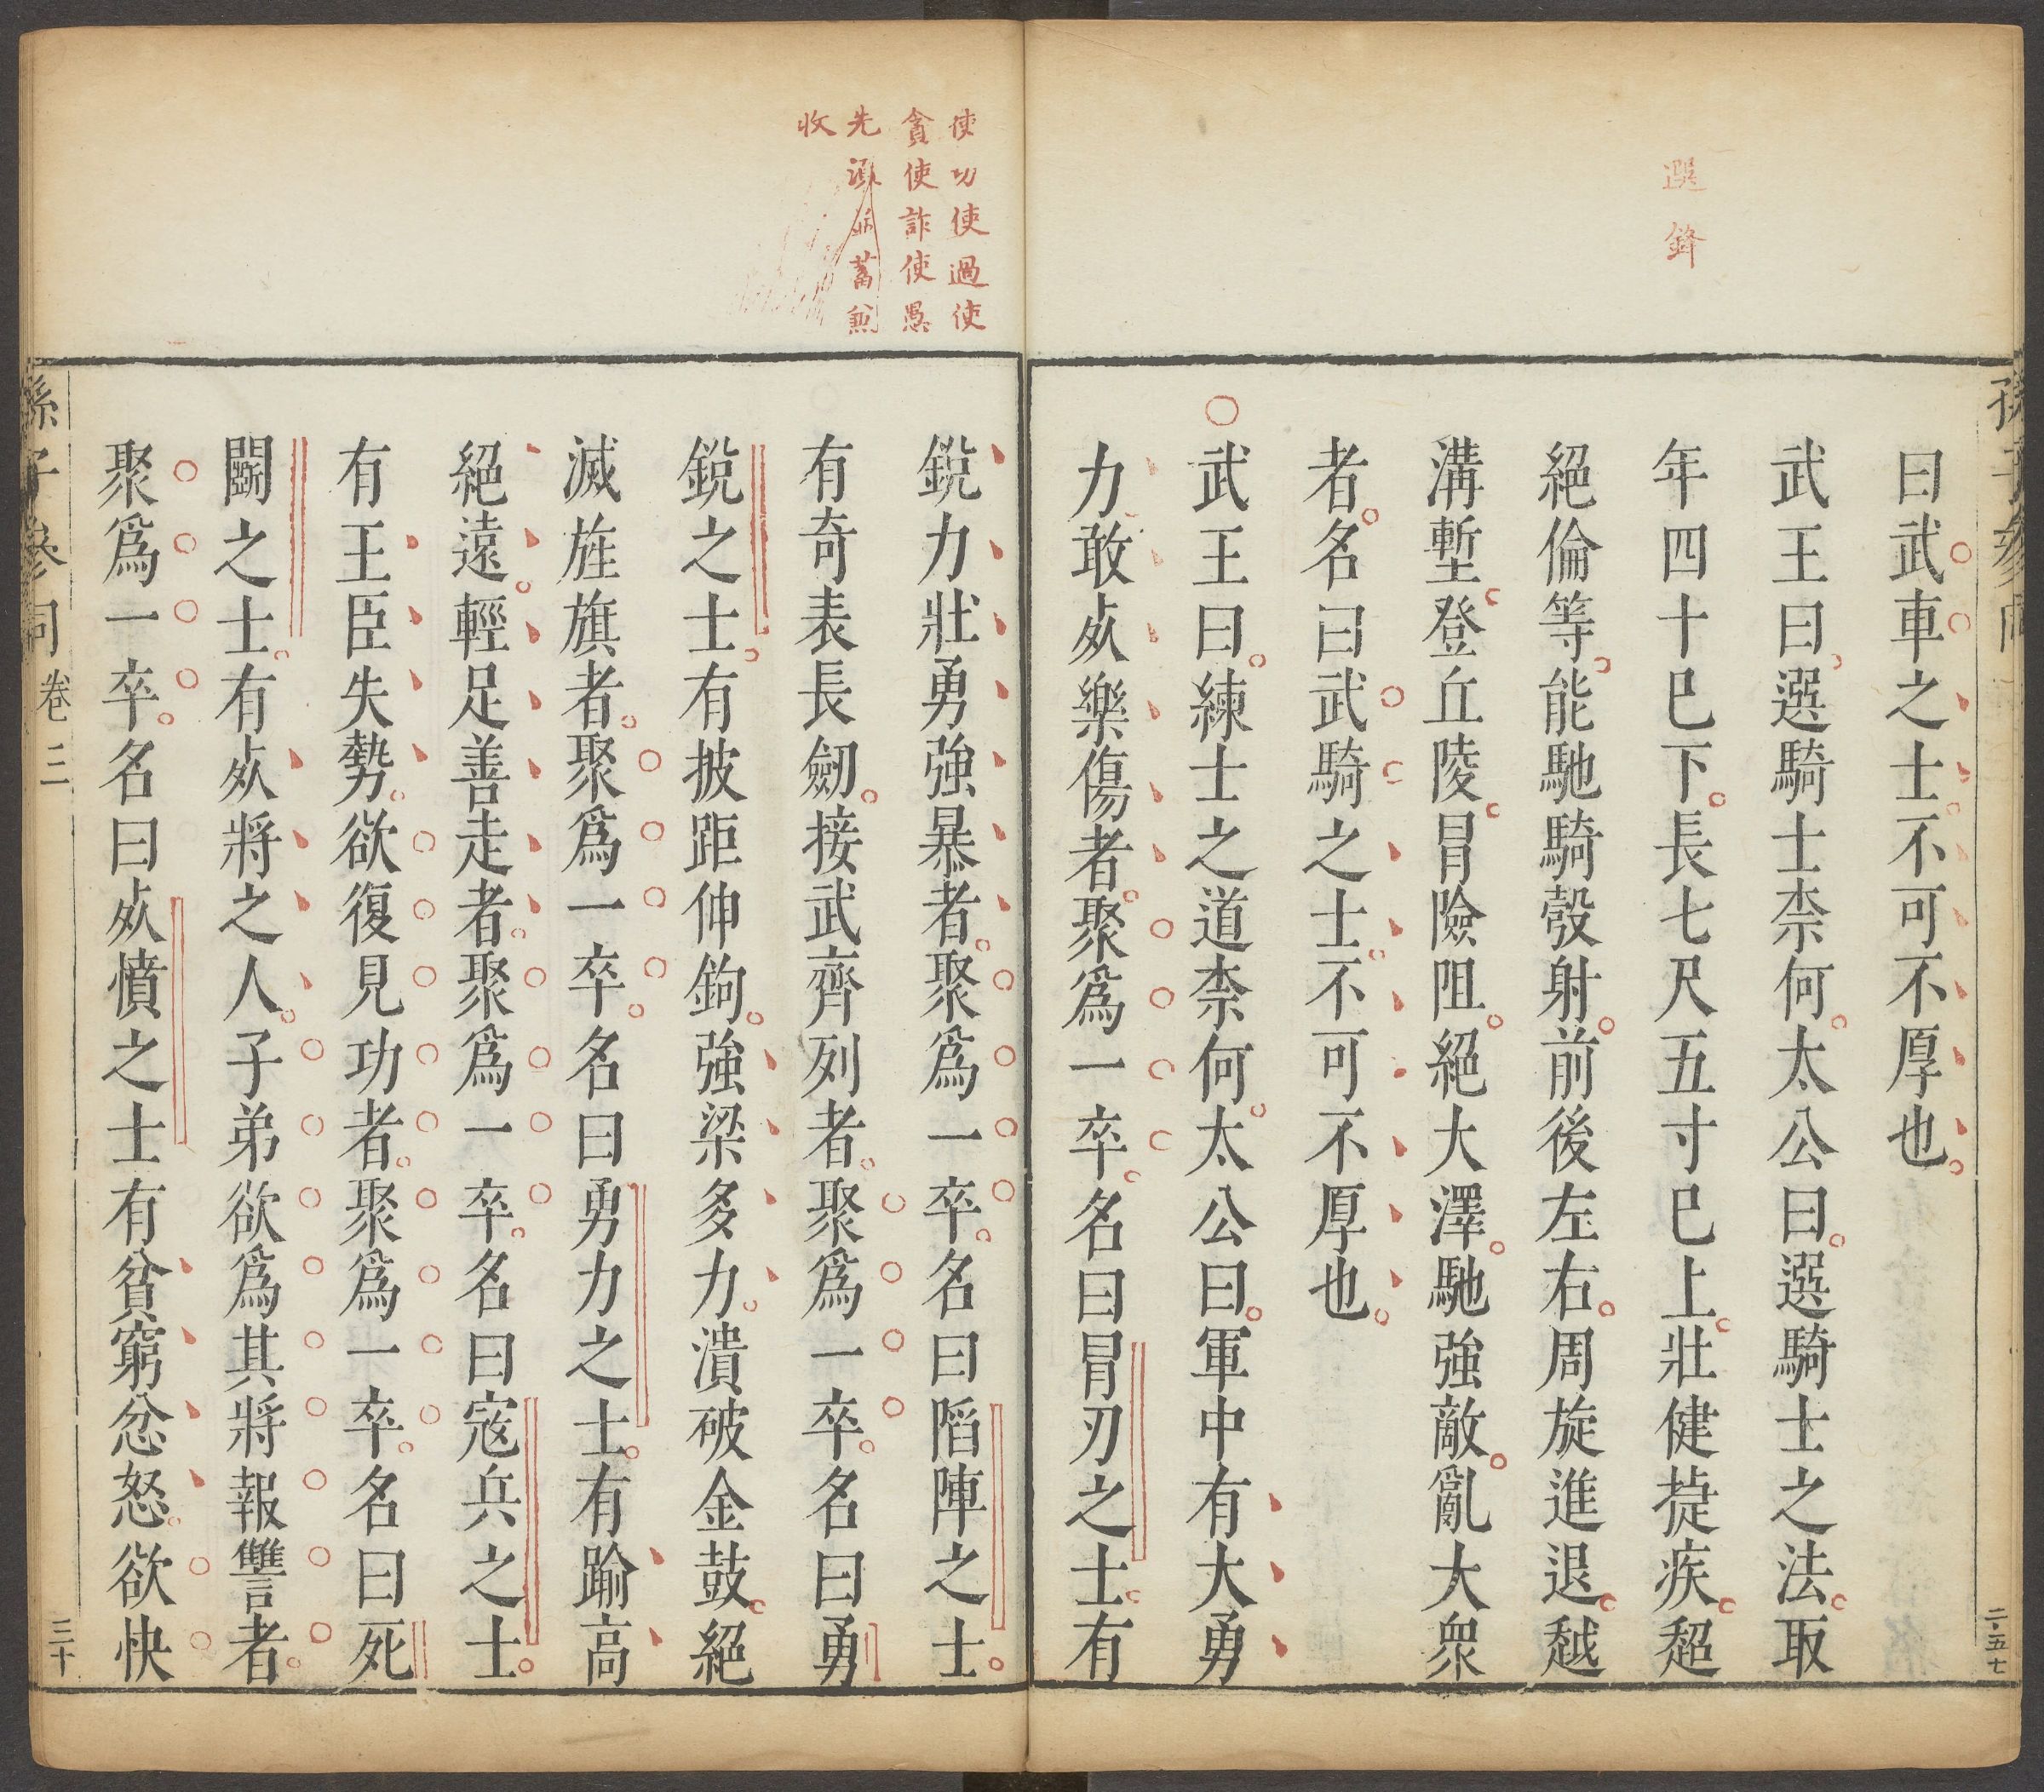 選鋒
曰武車之士不可不厚也
武王曰選騎士柰何太公曰選騎士之法取
年四十巳下長七尺五寸巳上壯健捷疾超
絕倫等能馳騎彀射前後左右周旋進退越
溝塹登丘陵冒險阻絕大澤馳強敵亂大衆
者名曰武騎之士不可不厚也
○武王曰練士之道柰何太公曰軍中有大勇
力敢㱙樂傷者聚爲一卒名曰冒刃之士有
使功使過使
貪使詐使愚
先須蓄兼
收
銳力壯勇強暴者聚爲一卒名曰陷陣之士
有奇表長劒接武齊列者聚爲一卒名曰勇
銳之士有披距伸鉤強梁多力潰破金鼓絕
滅旌旗者聚爲一卒名曰勇力之士有踰高
絕遠輕足善走者聚爲一卒名曰寇兵之士
有王臣失勢欲復見功者聚爲一卒名曰死
鬭之士有㱙將之人子弟欲爲其將報讐者
聚爲一卒名曰㱙憤之士有貧窮忿怒欲快
孫子參同 卷三
三十